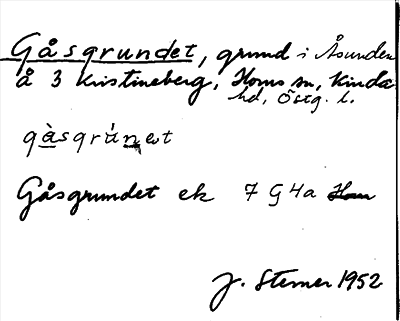 Gåsgrundet, grund i Åsunden
å 3 Kristineberg, Horns sn, Kinda
hd, Östg. l.
gàsgrúnet
Gåsgrundet ek 7 G 4a
J. Sterner 1952